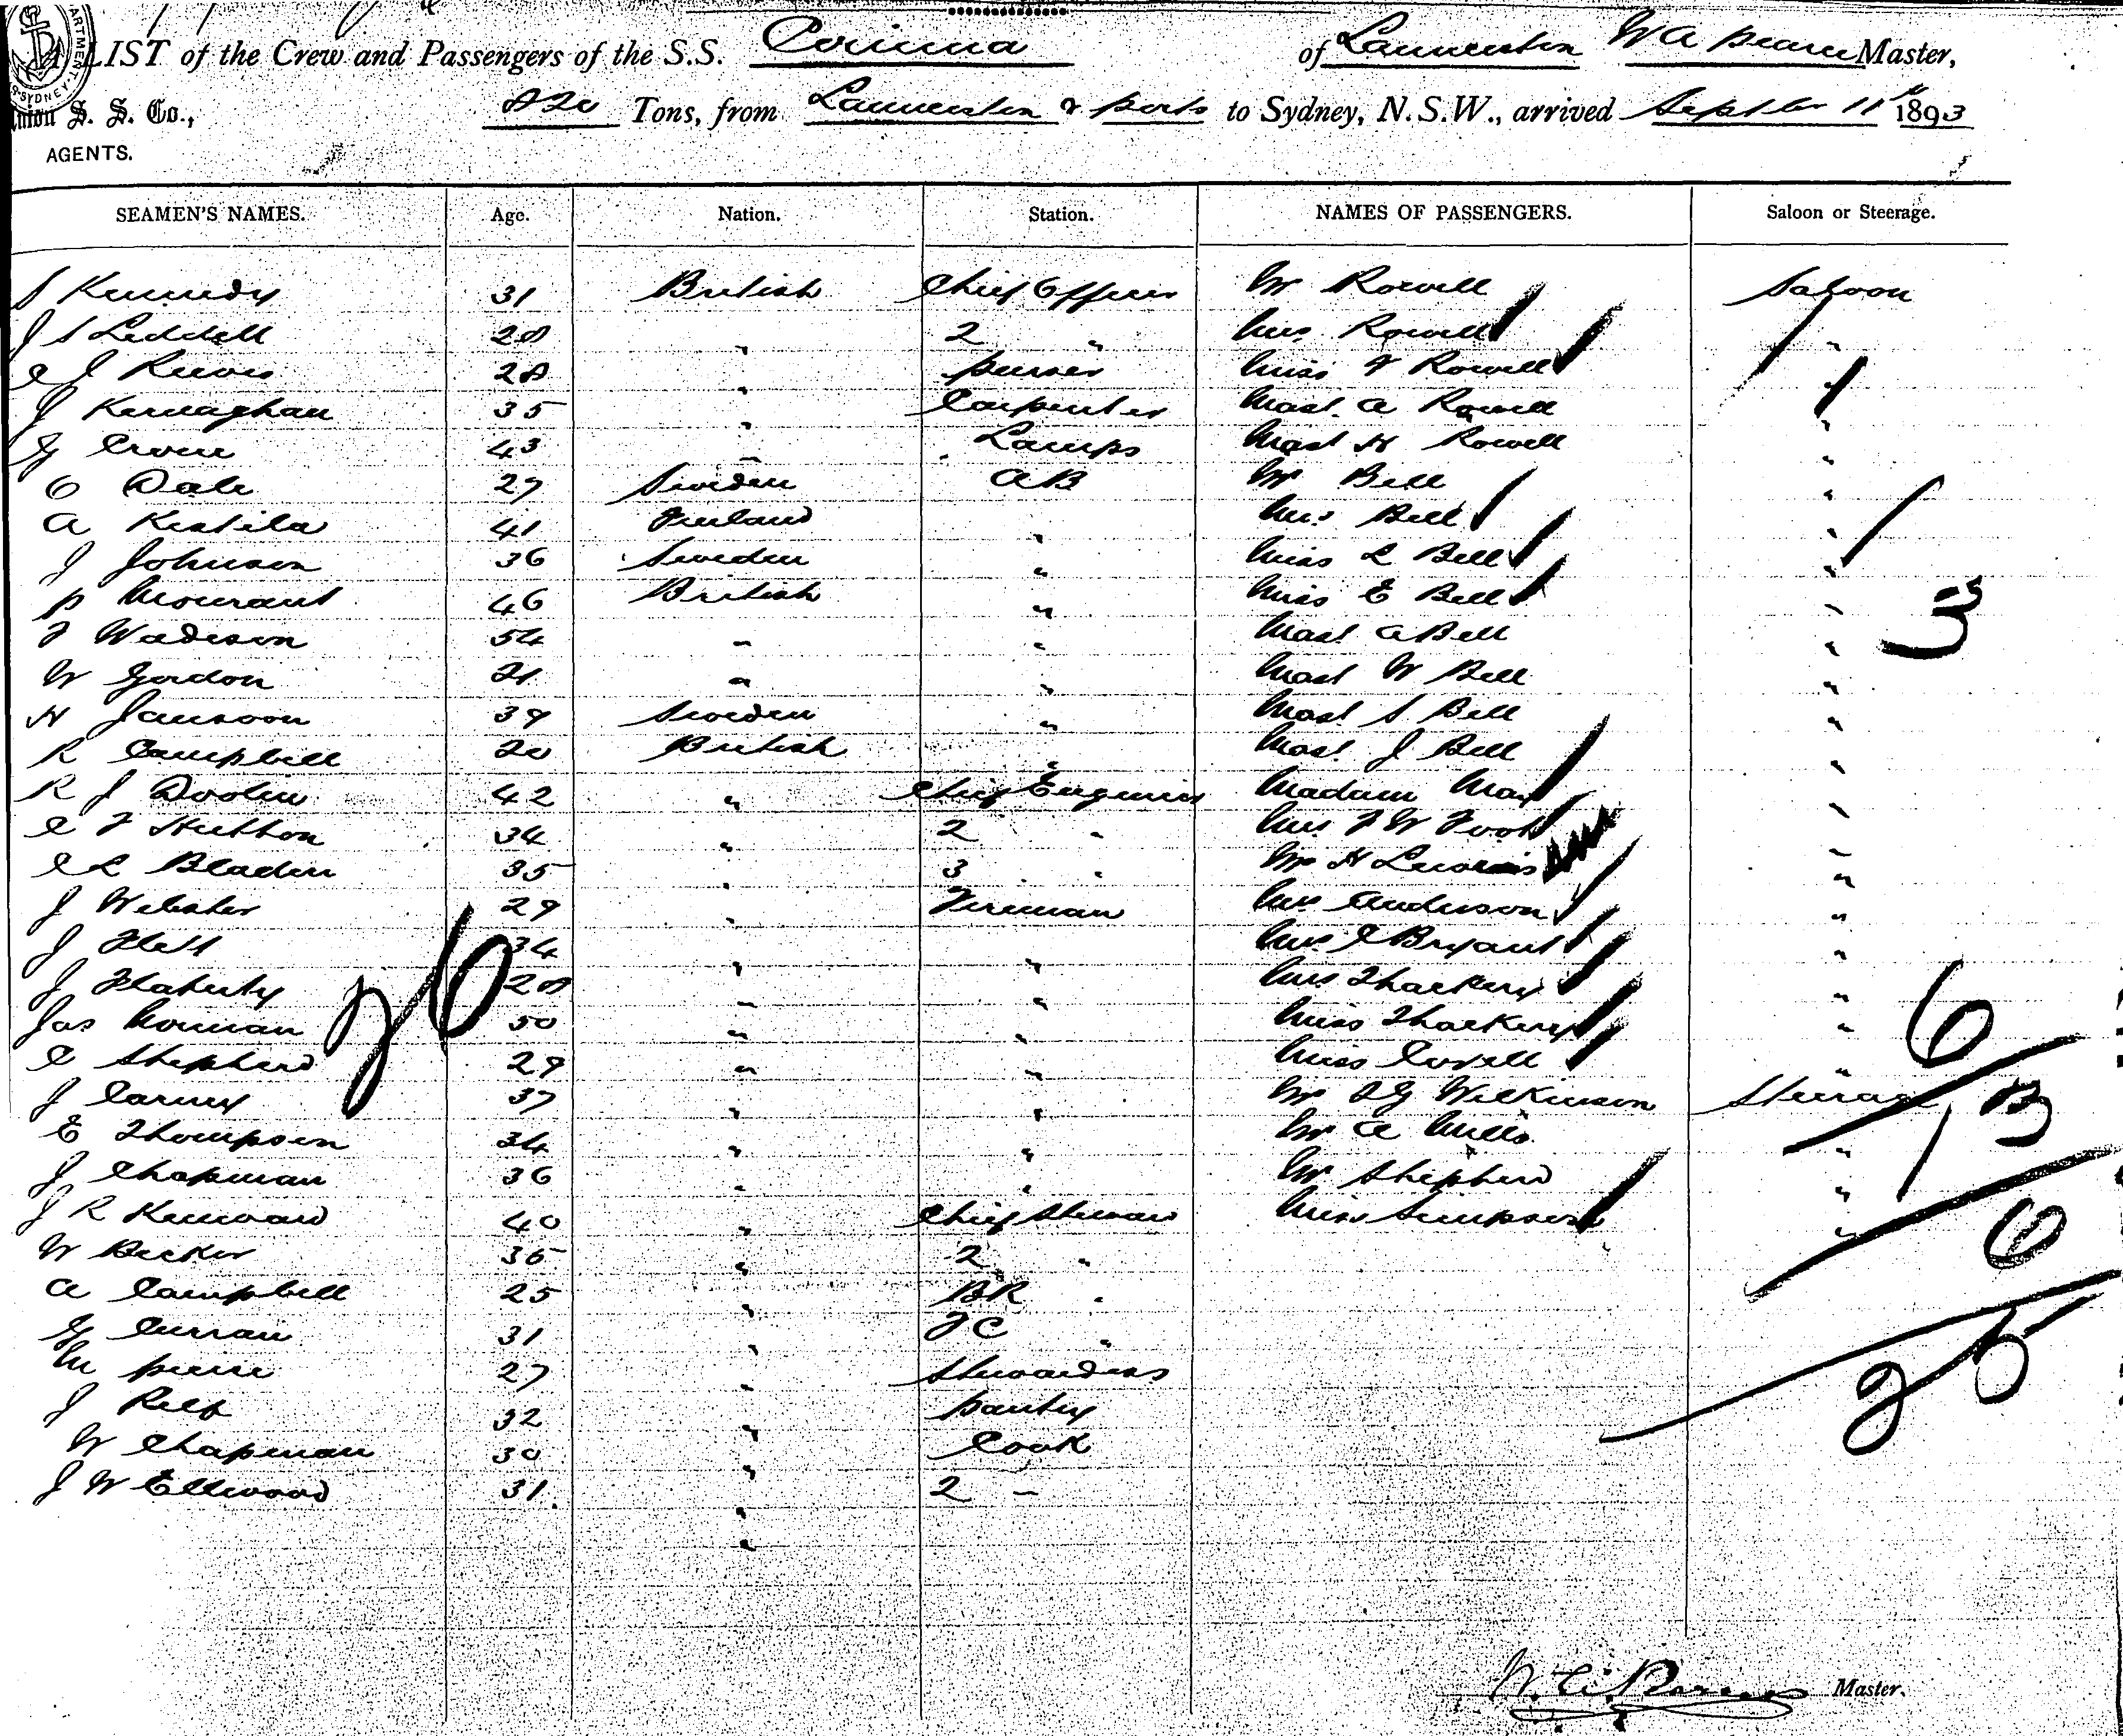 LIST of the Crew and Passengers of the S.S. Corinna of Launceston W A Pearce Master,
Union S. S. Co., 820 Tons, from Launceston & ports to Sydney, N.S.W., arrived Septber 11th 1893
AGENTS.
SEAMEN'S NAMES. Age. Nation. Station. NAMES OF PASSENGERS. Saloon or Steerage.
S Kennedy 31 British Chief Officer Mr Rowell Saloon
J S Leddell 28 " 2 " Mrs Rowell "
C J Reeves 28 " purser Miss F Rowell "
J Kernaghan 35 " Carpenter Mast. A Rowell "
G Crowe 43 " Lamps Mast H Rowell "
O Dale 27 Sweden AB Mr Bell "
A Kestila 41 Finland " Mrs Bell "
J Johnson 36 Sweden " Miss L Bell "
P Mourant 46 British " Miss E Bell "
F Wadeson 54 " " Mast A Bell "
W Gordon 21 " " Mast W Bell "
H Jansson 39 Sweden " Mast S Bell "
R Campbell 20 British " Mast. J Bell "
R J Doolin 42 " Chief Engineer Madam May "
C F Hutton 34 " 2 " Mrs F W Foot "
C L Bladen 35 " 3 " Mr H "
J Webster 29 " Fireman Mrs Anderson "
J Hall 34 " " Mrs C Bryant "
J Flaherty 28 " " Mrs Thackery "
Jas Norman 50 " " Miss Thackery "
C Shepherd 29 " " Miss Covell "
J Carney 37 " " Mr T G Wilkinson Steerage
E Thompson 34 " " Mr A Mills "
J Chapman 36 " " Mr Shepherd "
J R Kenward 40 " Chief Steward Miss Simpson "
W Becker 36 " 2 "
A Campbell 25 " BR "
G Curran 31 " FC "
M peirce 27 " Stewardess
J Relf 32 " pantry
W Chapman 30 " Cook
J W Ellwood 31 " 2 "
3
6
13
6
25
W. A. Pearce Master.